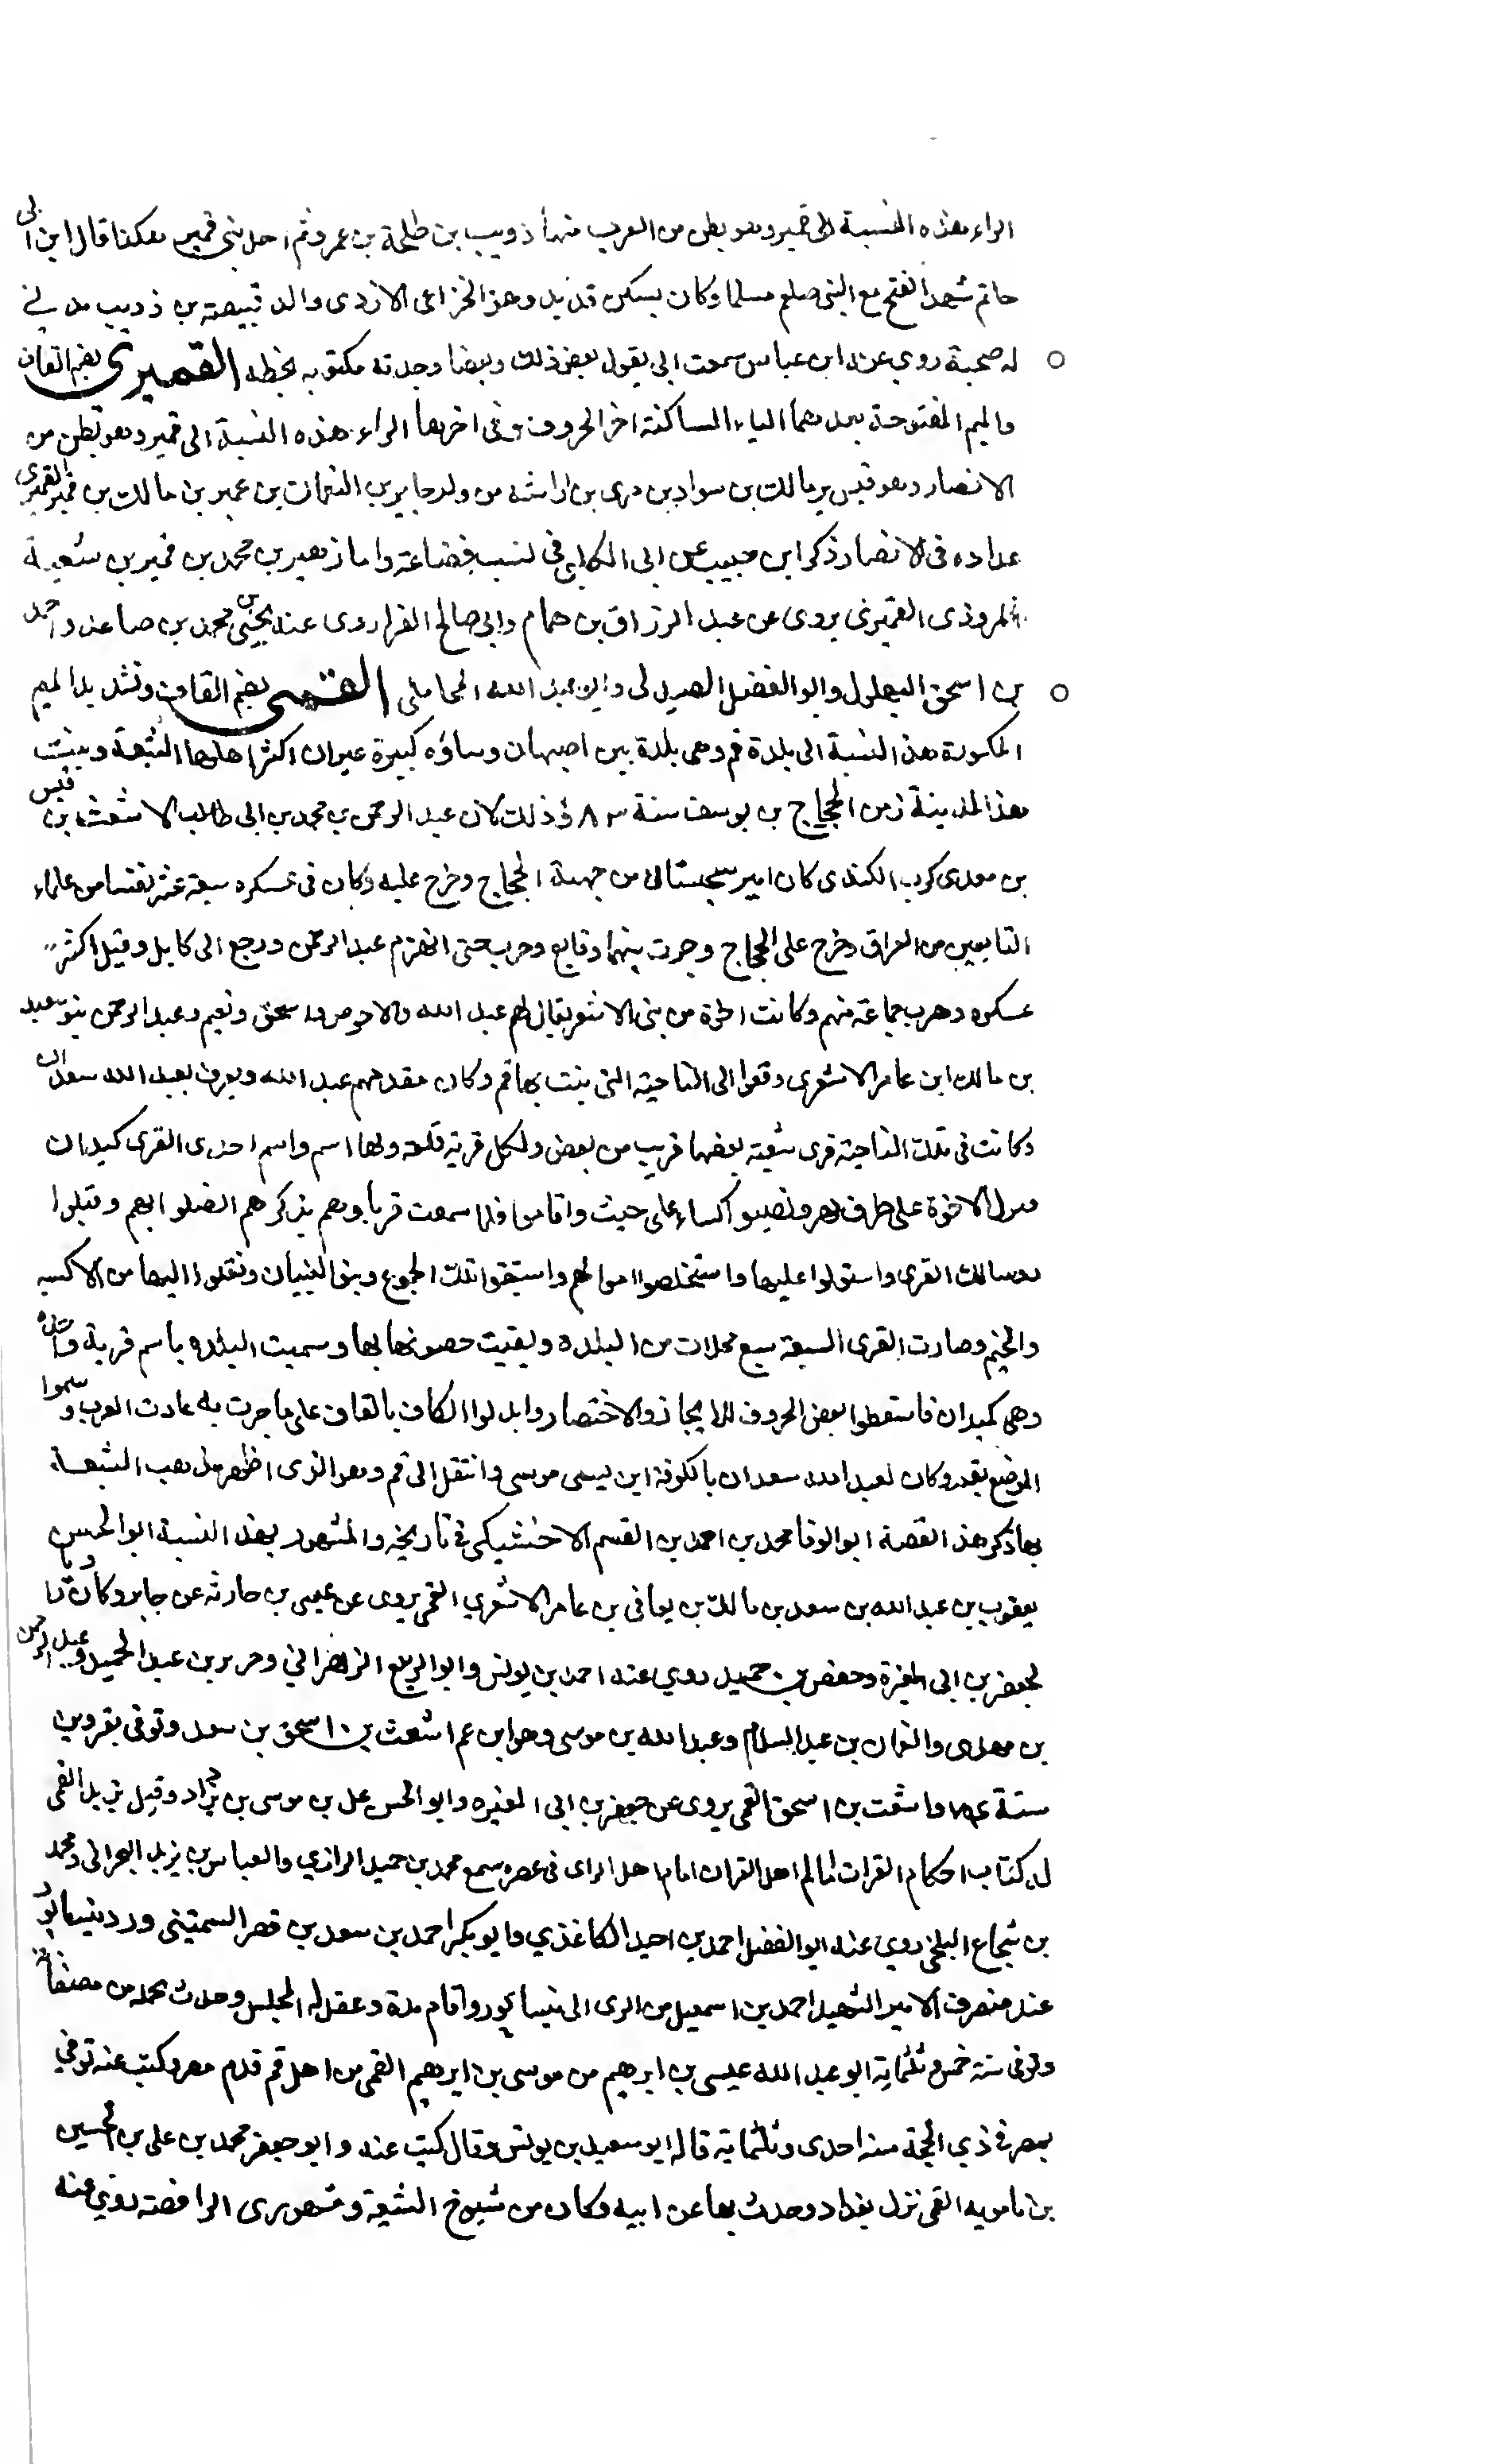 الراء هذه النسبة الى قمير وهو بطن من العرب منها ذويب بن طلحة بن عمرو ثم احد بنى قمير هكذا قال ابن ابى
حاتم شهد الفتح مع النبى صلعم مسلما وكان يسكن قديد وهو الخزاعى الازدى والد قبيصة بن ذويب مدنى
له صحبة روي عنه ابن عباس سمعت ابى يقول بعض ذلك وبعضا وجدته مكتوبه بخطه القميرى بضم القاف
والميم المفتوحة بعدهما الياء الساكنة اخر الحروف وفى اخرها الراء هذه النسبة الى قمير وهو بطن من
الانصار وهو قيس بن مالك بن سواد بن مرى بن اراشه من ولد جابر بن النعمان بن عمير بن مالك بن قمير القميرى
عداده فى الانصار ذكر ابن حبيب عن ابى الكلبى فى نسب قضاعة واما زهير بن محمد بن قمير بن شعبة
المروزى القميرى يروى عن عبد الرزاق بن همام وابى صالح الفرا روى عنه يحيى بن محمد بن صاعد واحمد
بن اسحق البهلول وابو الفضل الصيدلى وابو عبد الله المحاملى القمى بضم القاف وتشديد الميم
المكسورة هذه النسبة الى بلدة قم وهى بلدة بين اصبهان وساوه كبيرة غيران اكثر اهلها الشيعة وبنيت
هذا المدينة زمن الحجاج بن يوسف سنة ٨٣ وذلك لان عبد الرحمن بن محمد بن ابى طالب الاشعث بن قيس
بن معدى كرب الكندى كان امير سجستان من جهة الحجاج وخرج عليه وكان فى عسكره سبعة عشر نفسا من علماء
التابعين من العراق وخرج على الحجاج وجرت بينهما وقايع وحرب حتى انهزم عبد الرحمن ورجع الى كابل وقتل اكثر
عسكره وهرب جماعة منهم وكانت اخوة من بنى الاشعر يقال لهم عبد الله والاحوص واسحق ونعيم وعبد الرحمن بنو سعد
بن مالك ابن عامر الاشعرى وقعوا الى الناحية التى بنت بها قم وكان مقدمهم عبد الله ويعرف بعبد الله سعدان
وكانت فى تلك الناحية قرى سبعة بعضها قريب من بعض ولكل قرية قلعة ولها اسم واسم احدى القرى كميدان
فنزل الاخوة على طرف نهر ونصبوا اكساء على حيث واقاموا فلما سمعت قربا وهم بذكرهم انضلوا بهم وقتلوا
روسا تلك القرى واستولوا عليها واستخلصوا اموالهم واستبقوا تلك الجموع وبنو البنيان ونقلوا اليها من الاكسية
والخيم وصارت القرى السبعة سبع محلات من البلدة وبقيت حصونها بها وسميت البلده باسم قرية واحدة
وهى كميدان فاسقطوا بعض الحروف للايجاز والاختصار وابدلوا الكاف بالقاف على ما جرت به عادت العرب وسموا
الموضع بقم وكان لعبد الله سعدان بالكوفة ابن يسمى موسى وانتقل الى قم وهو الذى اظهر مذهب الشيعة
بها ذكر هذ القصة ابو الوفا محمد بن احمد بن القسم الاخشيكى فى تاريخه والمشهور بهذه النسبة ابو الحسن
يعقوب بن عبد الله بن سعد بن مالك بن يعافى بن عامر الاشعري القمى يروى عن عيسى بن حارثه عن جابر وكان
لجعفر بن ابى المغيرة وحفص بن حميد روي عنه احمد بن يونس وابو الربيع الزهرانى وجرير بن عبد الحميد وعبد الرحمن
بن مهدى والنعمان بن عبد السلام وعبد الله بن موسى وهو ابن عم اشعث بن اسحق بن سعد وتوفى بقزوين
سنة واشعث بن اسحق القمى يروى عن جعفر بن ابى المغيره وابو الحسن على بن موسى بن يزداد وقيل يزيد القمى
له كتاب احكام القران امام اهل الراى فى عصره سمع محمد بن حميد الرازى والعباس بن يزيد البحرانى ومحمد
بن شجاع البلخى روي عنه ابو الفضل احمد بن احيد الكاغذي وابو بكر احمد بن سعد بن نصر ورد نيسابور
عند منصرف الامير الشهيد احمد بن اسمعيل من الرى الى نيسابور واقام مدة وعقد له المجلس وحدث بجملة من مصنفاته
وتوفى سنة خمس وثلثماية ابو عبد الله عيسى بن ابرهيم من موسى بن ابرهيم القمى من اهل قم قدم مصر وكتب عنه توفي
بمصر فى ذي الحجة سنة احدى وثلثماية قاله ابو سعيد بن يونس وقال كتبت عنه وابو جعفر محمد بن على بن الحسين
بن بابويه القمى نزل بغداد وحدث بها عن ابيه وكان من شيوخ الشيعة ومشهورى الرافضه روي عنه